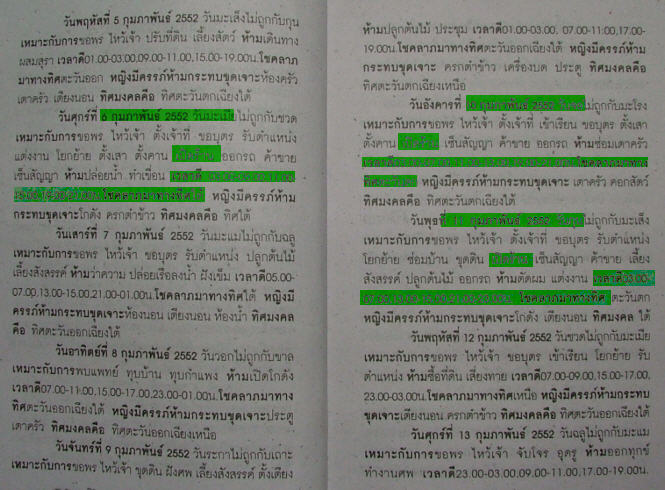 วันพฤหัสที่ 5 กุมภาพันธ์ 2552 วันมะเส็งไม่ถูกกับกุน
เหมาะกับการขอพร ไหว้เจ้า ปรับที่ดิน เลี้ยงสัตว์ ห้ามเดินทาง
ผสมสุรา เวลาดี01.00-03.00,09.00-11.00,15.00-19.00น.โชคลาภ
มาทางทิศตะวันออก หญิงมีครรภ์ห้ามกระทบขุดเจาะห้องครัว
เตาครัว เตียงนอน ทิศมงคลคือ ทิศตะวันออกเฉียงใต้
วันศุกร์ที่ 6 กุมภาพันธ์ 2552 วันมะเมียไม่ถูกกับชวด
เหมาะกับการขอพร ไหว้เจ้า ตั้งเจ้าที่ ขอบุตร รับตำแหน่ง
แต่งงาน โยกย้าย ตั้งเสา ตั้งคาน ออกรถ ค้าขาย
เซ็นสัญญา ห้ามปล่อยน้ำ ทำเขื่อน เวลาดี
โชคลาภมาทางทิศ หญิงมีครรภ์ห้าม
กระทบขุดเจาะโกดัง ครกตำข้าว ทิศมงคลคือ ทิศใต้
วันเสาร์ที่ 7 กุมภาพันธ์ 2552 วันมะแมไม่ถูกกับฉลู
เหมาะกับการขอพร ไหว้เจ้า ขอบุตร รับตำแหน่ง ปลูกต้นไม้
เลี้ยงสังสรรค์ ห้ามว่าความ ปล่อยเรือลงน้ำ ฝังเข็ม เวลาดี05.00-
07.00,13.00-15.00,21.00-01.00น.โชคลาภมาทางทิศใต้ หญิงมี
ครรภ์ห้ามกระทบขุดเจาะห้องนอน เตียงนอน ห้องน้ำ ทิศมงคล
คือ ทิศตะวันออก
วันอาทิตย์ที่ 8 กุมภาพันธ์ 2552 วันวอกไม่ถูกกับขาล
เหมาะกับการพบแพทย์ ทุบบ้าน ทุบกำแพง ห้ามเปิดโกดัง
เวลาดี07.00-11.00,15.00-17.00,23.00-01.00น.โชคลาภมาทาง
ทิศตะวันออกเฉียงใต้ หญิงมีครรภ์ห้ามกระทบขุดเจาะประตู
เตาครัว ทิศมงคลคือ ทิศตะวันออกเฉียงเหนือ
วันจันทร์ที่ 9 กุมภาพันธ์ 2552 วันระกาไม่ถูกกับเถาะ
เหมาะกับการขอพร ไหว้เจ้า ขุดดิน ฝังศพ เลี้ยงสังสรรค์ ตั้งเตียง
ห้ามปลูกต้นไม้ ประชุม เวลาดี01.00-03.00, 07.00-11.00,17.00-
19.00น.โชคลาภมาทางทิศตะวันออกเฉียงใต้ หญิงมีครรภ์ห้าม
กระทบขุดเจาะ ครกตำข้าว เครื่องบด ประตู ทิศมงคลคือ
ทิศตะวันตกเฉียงเหนือ
วันอังคารที่ กุมภาพันธ์ 2552 ไม่ถูกกับมะโรง
เหมาะกับการขอพร ไหว้เจ้า ตั้งเจ้าที่ เข้าเรียน ขอบุตร ตั้งเสา
ตั้งคาน เซ็นสัญญา ค้าขาย ออกรถ ห้ามซ่อมเตาครัว
โชคลาภมาทาง
หญิงมีครรภ์ห้ามกระทบขุดเจาะ เตาครัว คอกสัตว์
ทิศมงคลคือ ทิศตะวันตกเฉียงใต้
วันพุธที่ กุมภาพันธ์ 2552 ไม่ถูกกับมะเส็ง
เหมาะกับการขอพร ไหว้เจ้า ตั้งเจ้าที่ ขอบุตร รับตำแหน่ง
โยกย้าย ซ่อมบ้าน ขุดดิน เซ็นสัญญา ค้าขาย เลี้ยง
สังสรรค์ ปลูกต้นไม้ ออกรถ ห้ามตัดผม แต่งงาน เวลาดี03.00-
โชคลาภมาทางทิศ ตะวันตก
หญิงมีครรภ์ห้ามกระทบขุดเจาะโกดัง เตียงนอน ทิศมงคล ใต้
วันพฤหัสที่ 12 กุมภาพันธ์ 2552 วันชวดไม่ถูกกับมะเมีย
เหมาะกับการขอพร ไหว้เจ้า ขอบุตร เข้าเรียน โยกย้าย รับ
ตำแหน่ง ห้ามซื้อที่ดิน เสี่ยงทาย เวลาดี07.00-09.00,15.00-17.00,
23.00-03.00น.โชคลาภมาทางทิศเหนือ หญิงมีครรภ์ห้ามกระทบ
ขุดเจาะเตียงนอน ครกตำข้าว ทิศมงคลคือ ทิศตะวันออกเฉียงใต้
วันศุกร์ที่ 13 กุมภาพันธ์ 2552 วันฉลูไม่ถูกกับมะแม
เหมาะกับการขอพร ไหว้เจ้า จับโจร อุดรู ห้ามออกทุกข์
ทำงานศพ เวลาดี23.00-03.00,09.00-11.00,17.00-19.00น.